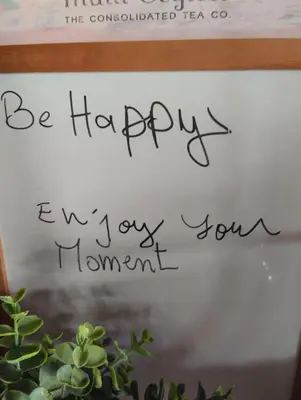 THE CONSOLIDATED TEA CO.
Be Happy
Enjoy Your
Moment